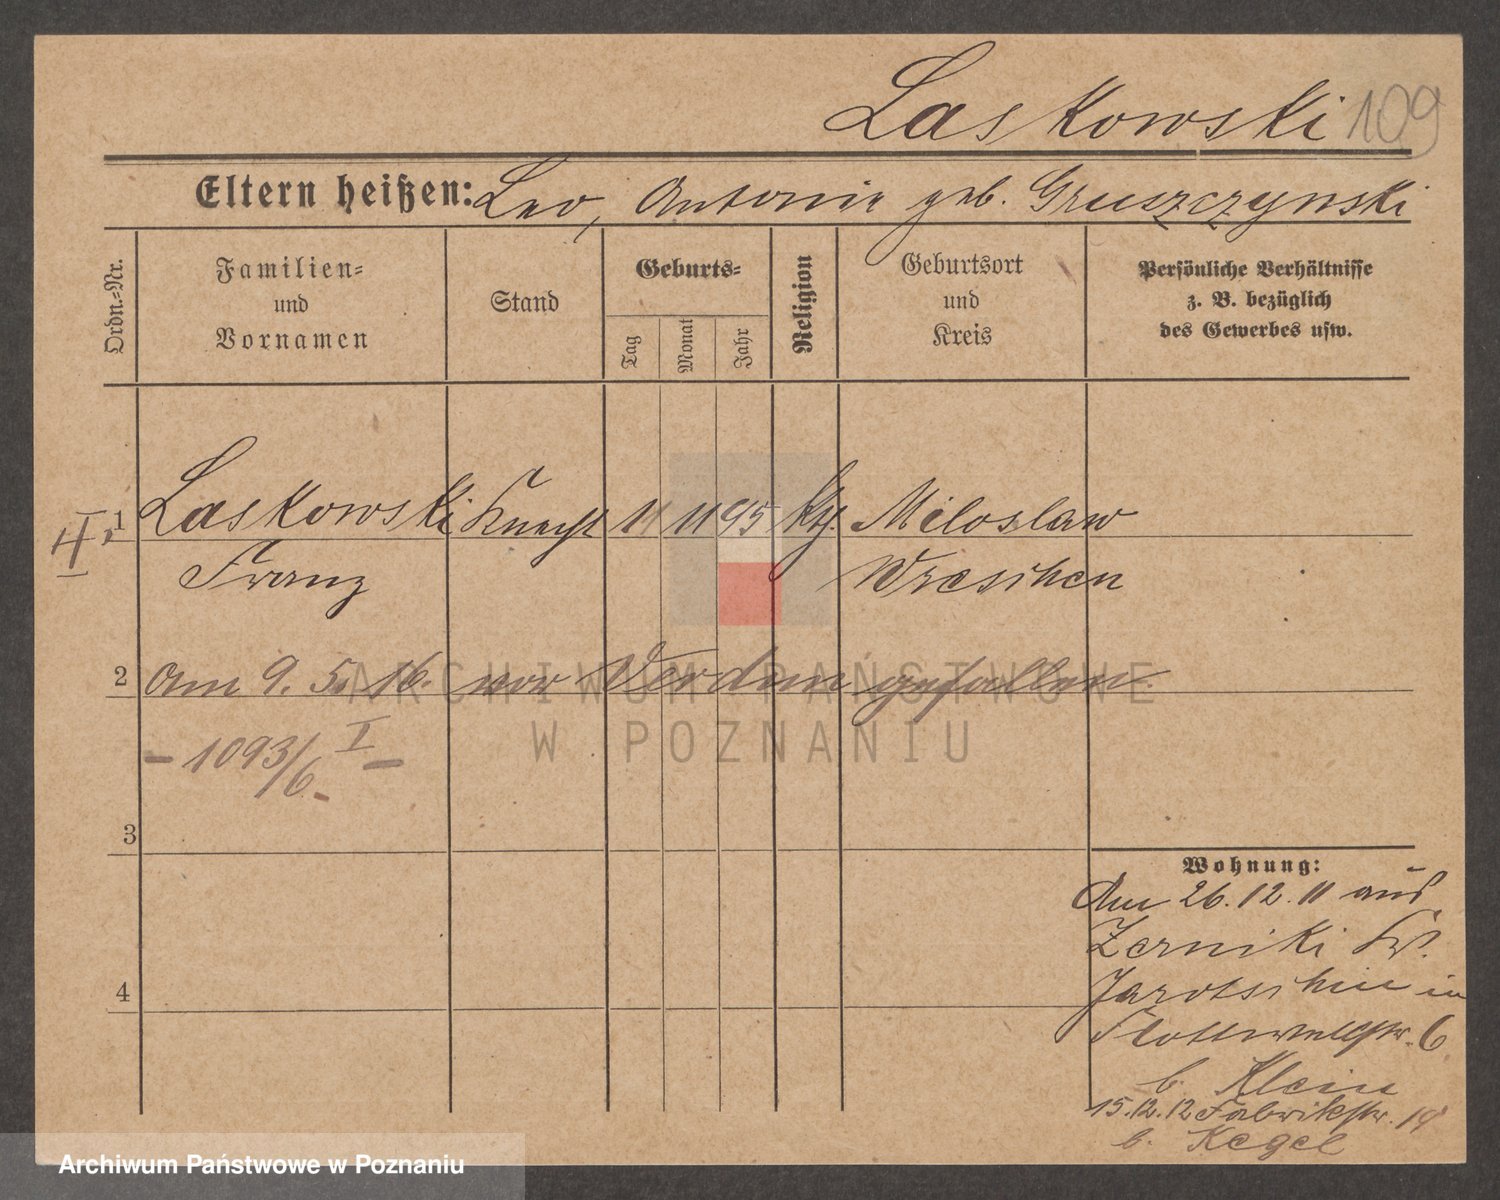 Laskowski 109
Eltern heißen: Leo, Antonie geb. Gruszczynski
Ordn.-Nr.
Familien-
und
Vornamen
Stand
Geburts-
Tag
Monat
Jahr
Religion
Geburtsort
und
Kreis
Persönliche Verhältnisse
z. B. bezüglich
des Gewerbes usw.
1 Laskowski Knecht 11 11 95 kth. Miloslaw
Franz Wreschen
2 Am 9. 5. 16. vor Verdun gefallen.
- 1093/6 I -
3
4
Wohnung:
Am 26.12.11 aus
Zerniki Kr.
Jarotschin in
Flottwellstr. 6
b. Klein
15.12.12 Fabrikstr. 19
b. Kegel
ARCHIWUM PAŃSTWOWE
W POZNANIU
Archiwum Państwowe w Poznaniu